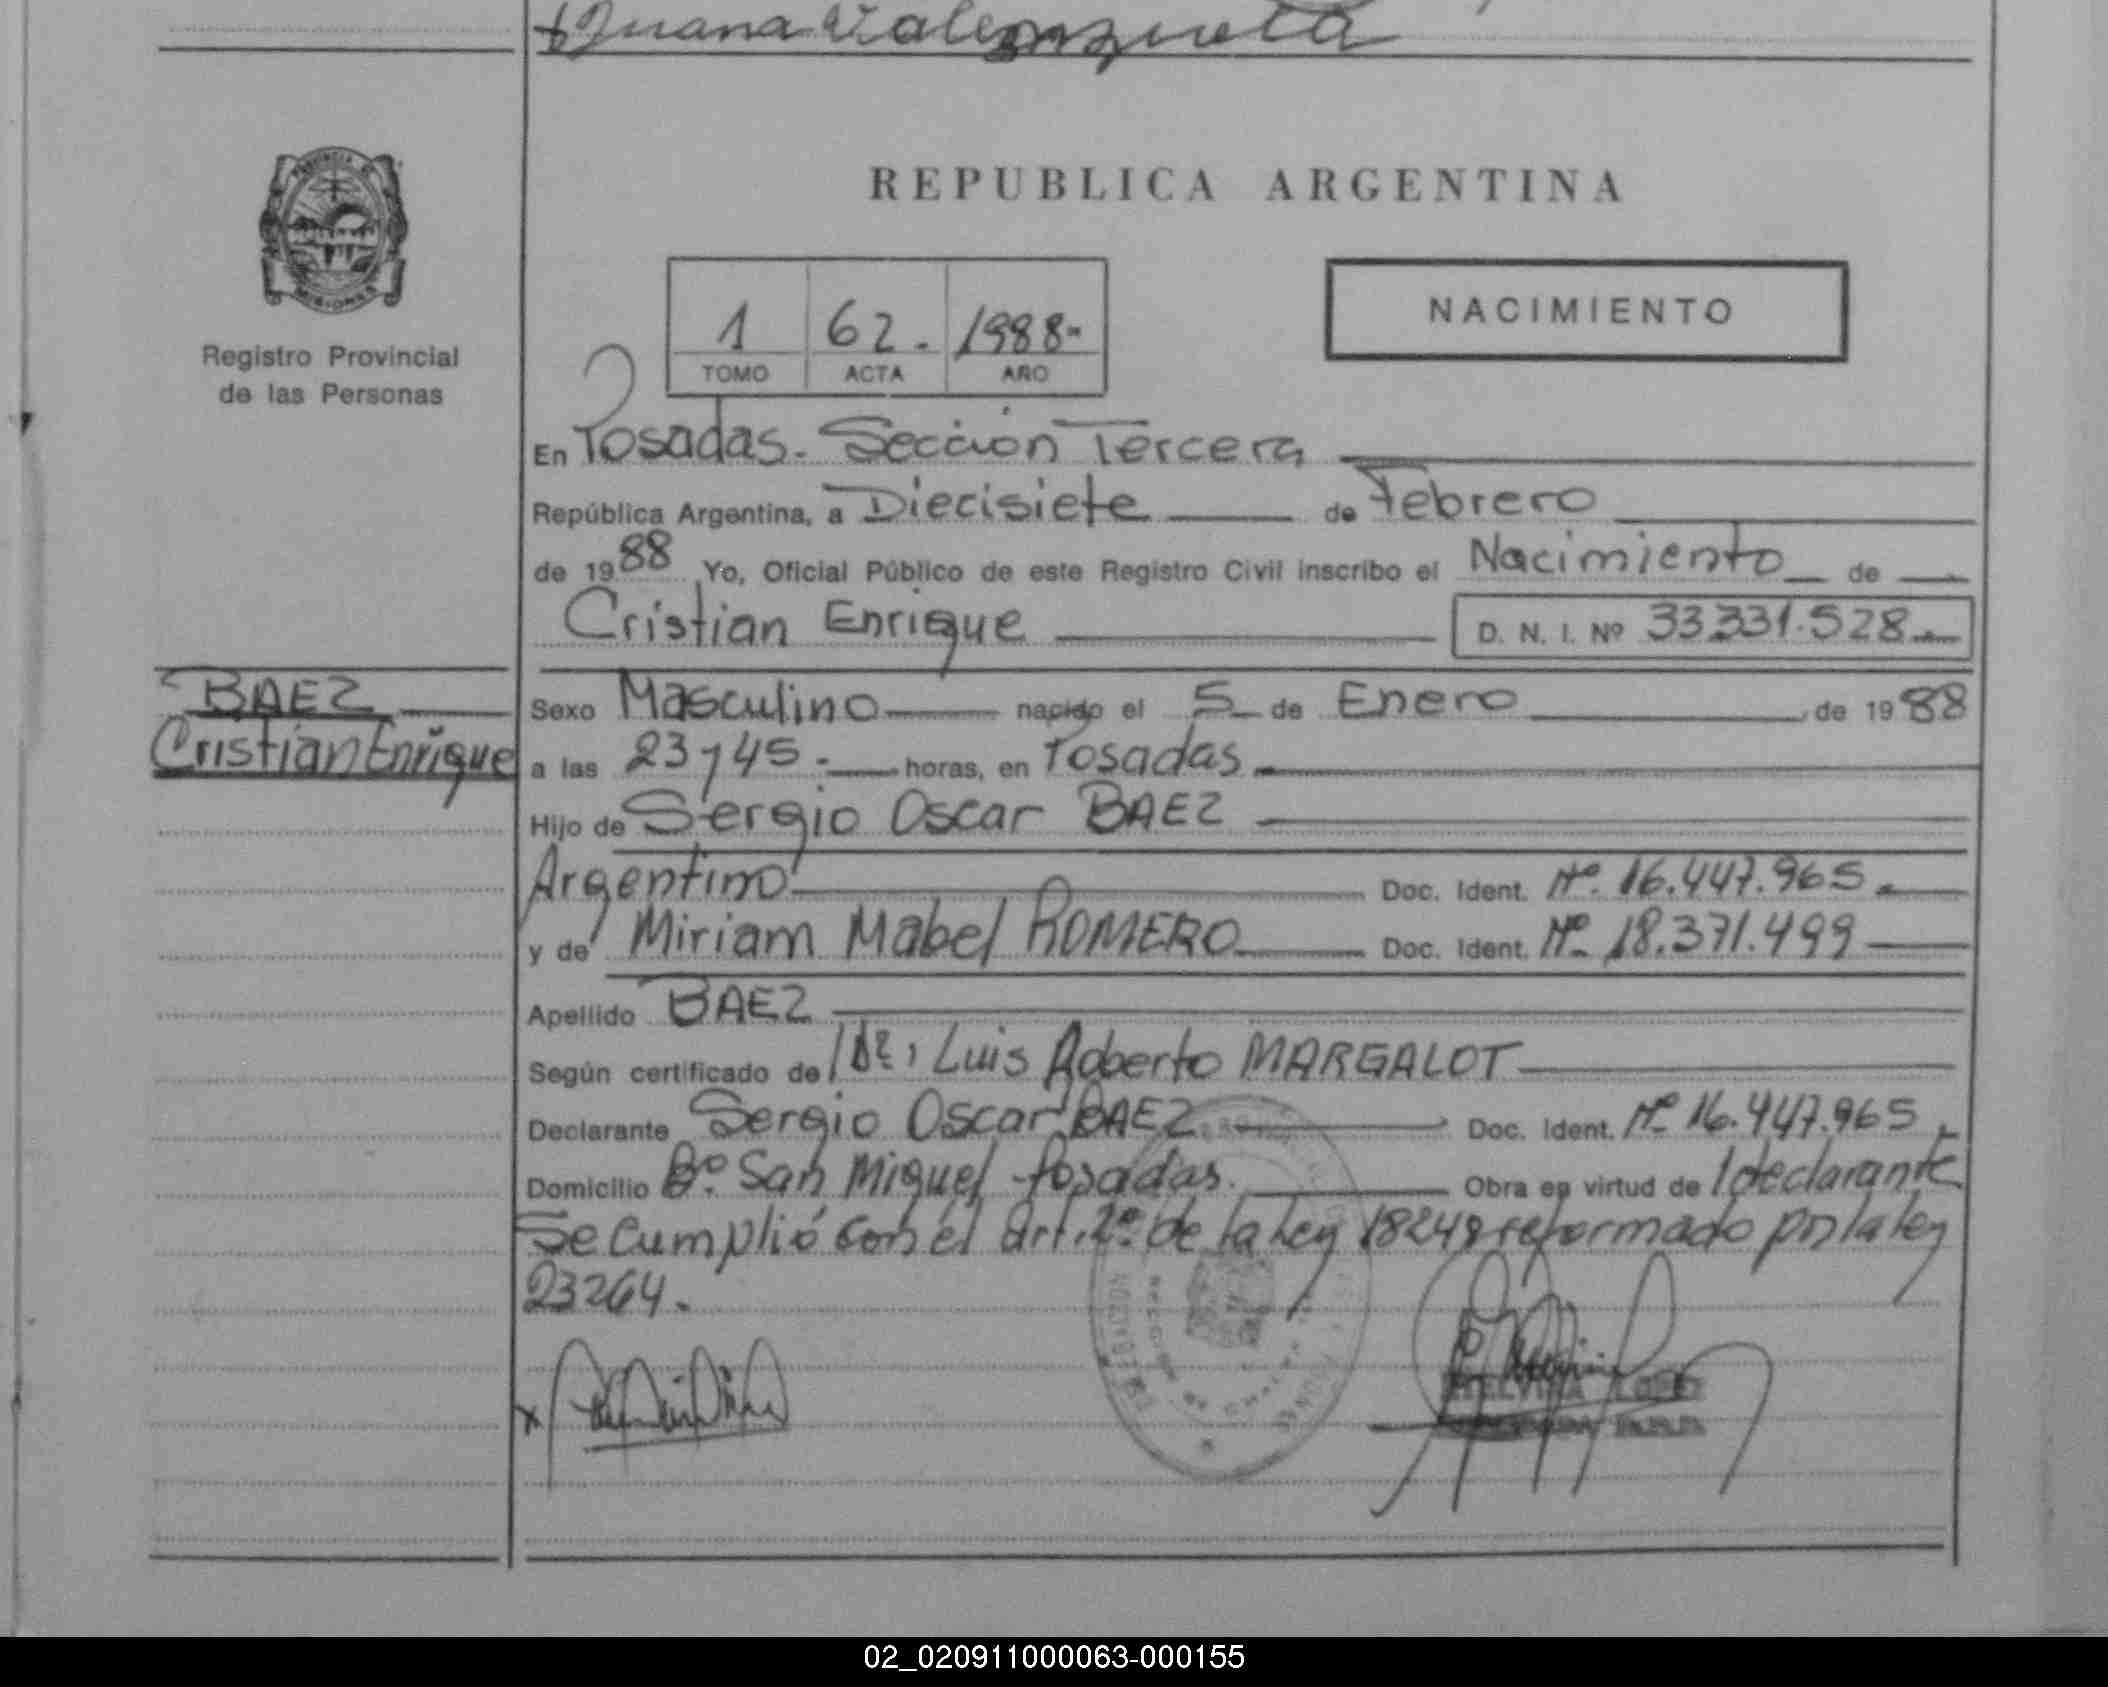 Juana Valenzuela
PROVINCIA DE
MISIONES
Registro Provincial
de las Personas
REPUBLICA ARGENTINA
1 62. 1988-
TOMO ACTA AÑO
NACIMIENTO
En Posadas. Sección Tercera
República Argentina, a Diecisiete de Febrero
de 1988 Yo, Oficial Público de este Registro Civil inscribo el Nacimiento de
Cristian Enrique D. N. I. Nº 33.331.528
BAEZ
Cristian Enrique
Sexo Masculino nacido el 5 de Enero de 1988
a las 23 y 45. horas, en Posadas
Hijo de Sergio Oscar BAEZ
Argentino Doc. Ident. Nº. 16.447.965.
y de Miriam Mabel ROMERO Doc. Ident. Nº 18.371.499
Apellido BAEZ
Según certificado de l Dr. Luis Roberto MARGALOT
Declarante Sergio Oscar BAEZ Doc. Ident. Nº 16.447.965.
Domicilio Bº. San Miguel - Posadas. Obra en virtud de l declarante
Se Cumplió con el art. 2º de la Ley 18248 reformado por la ley
23264.
LOPEZ
02_020911000063-000155